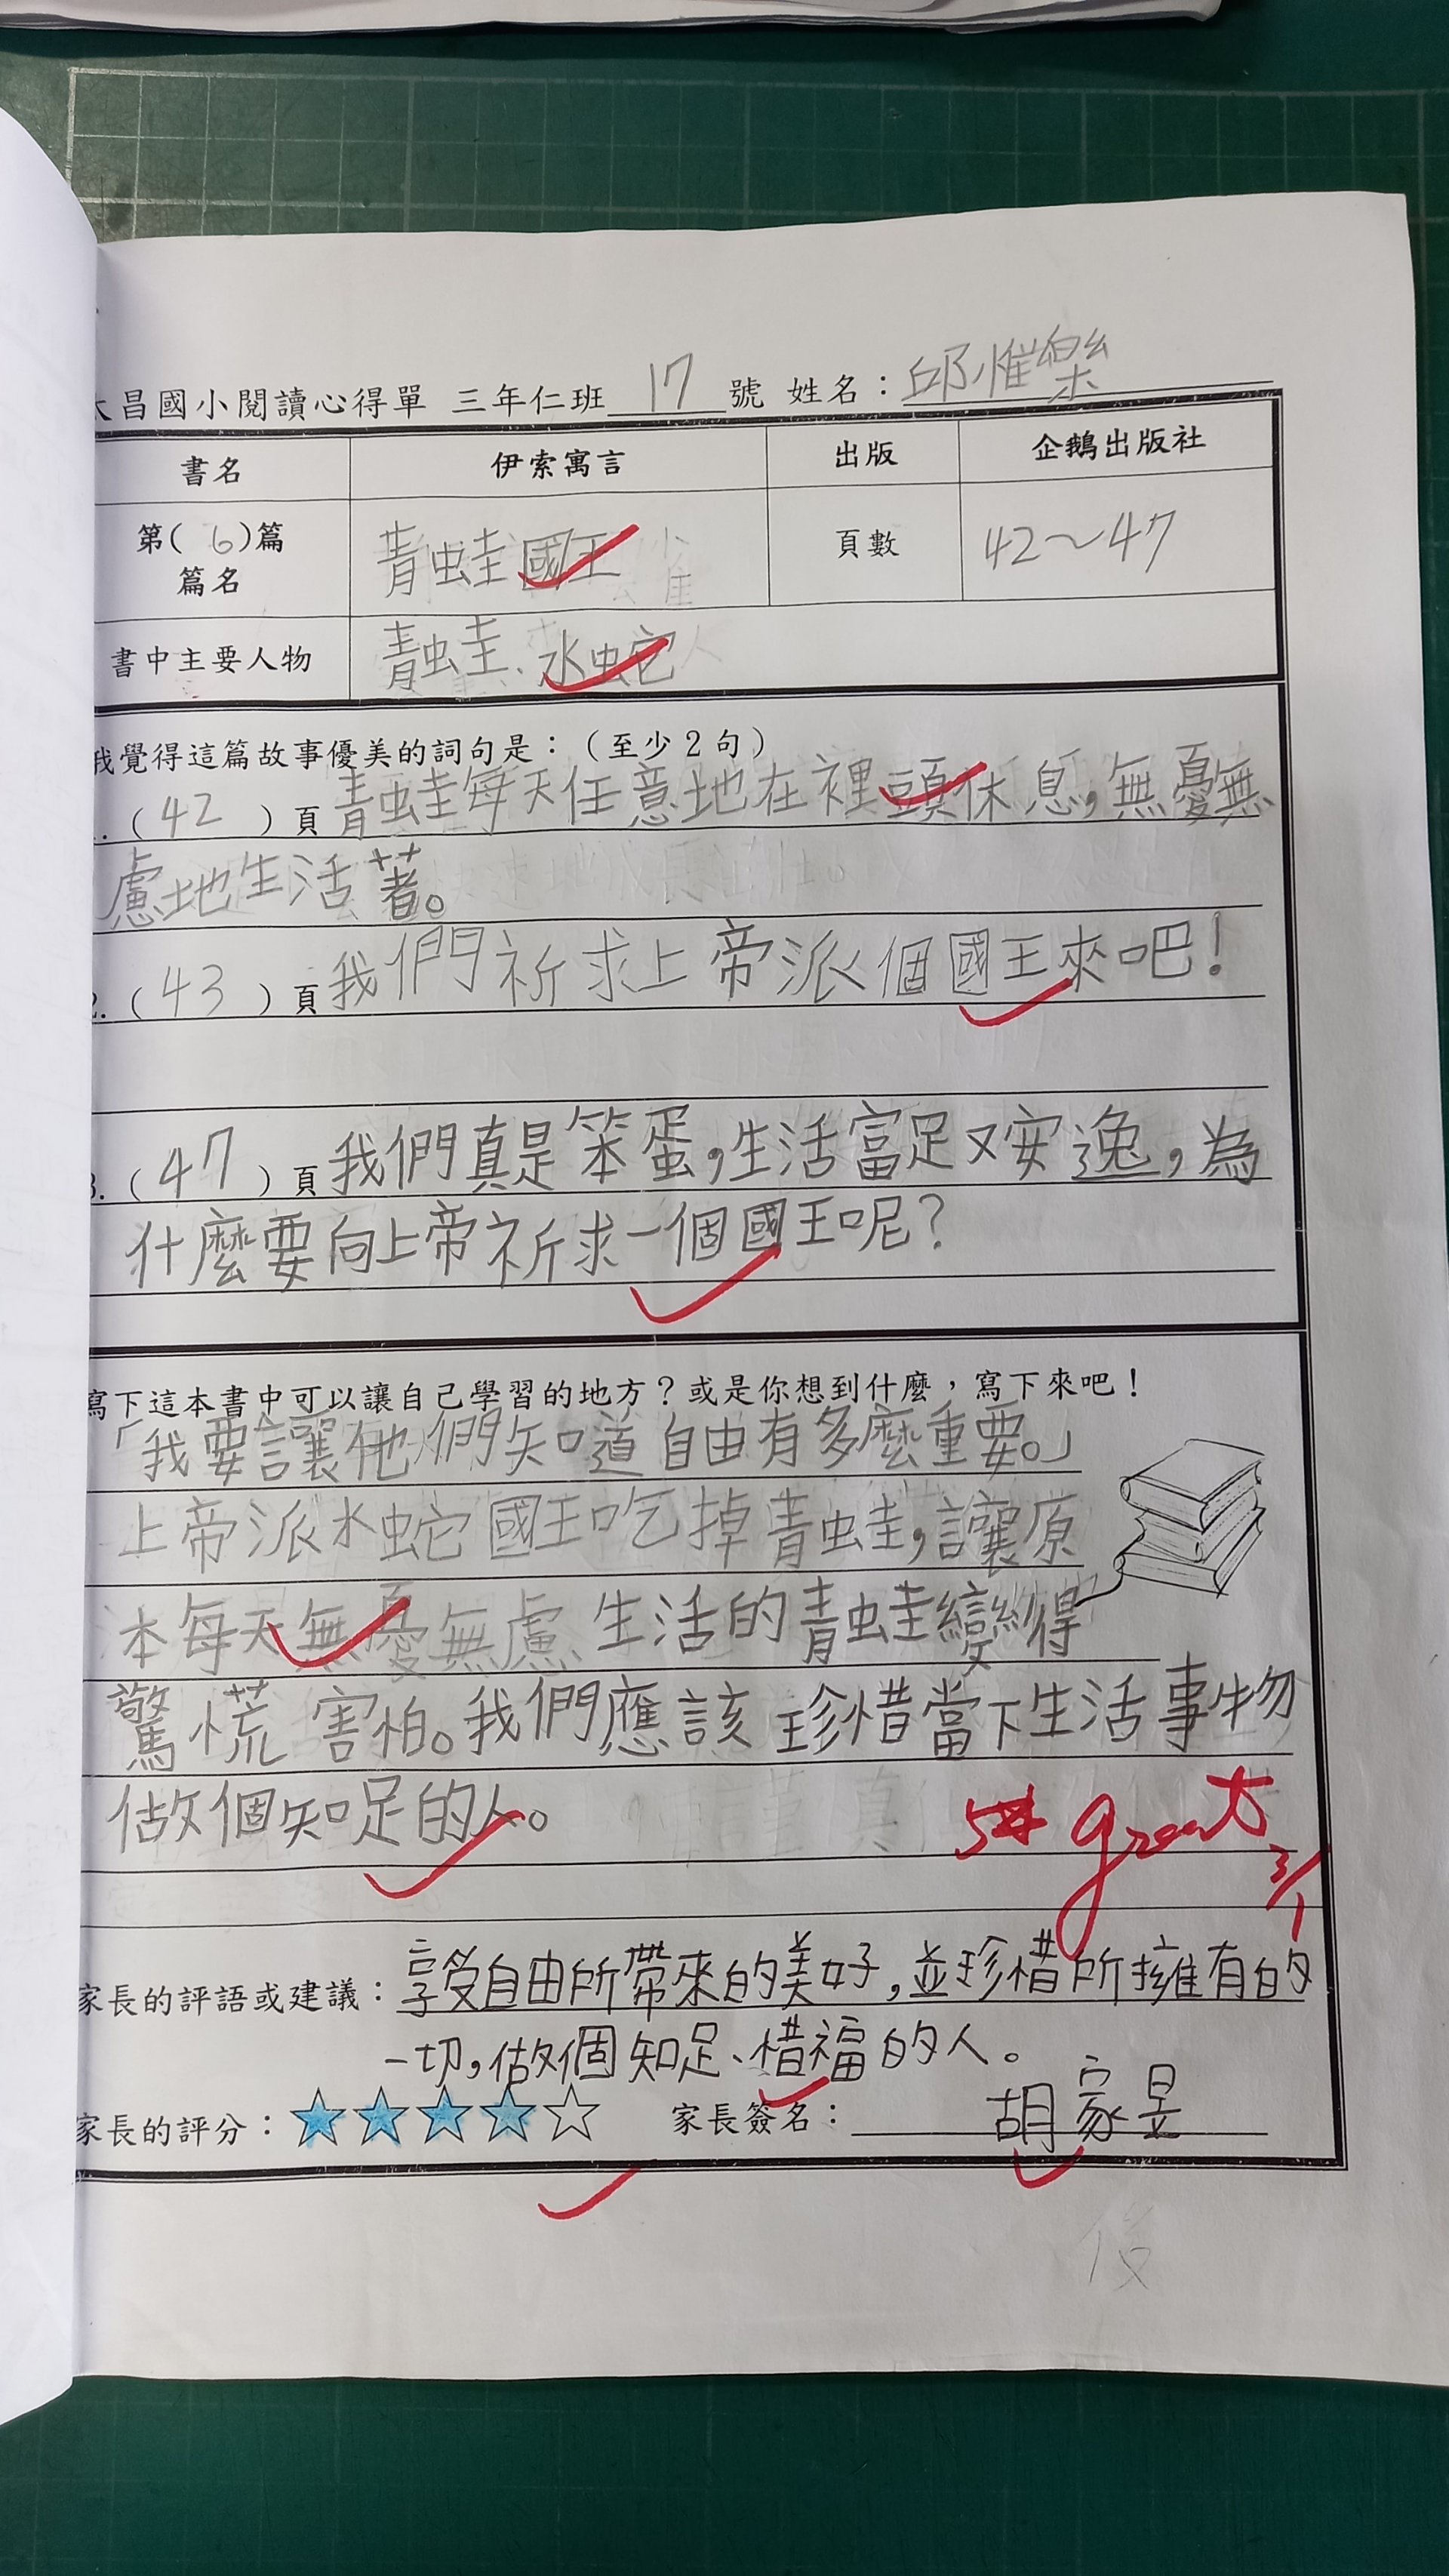 大昌國小閱讀心得單 三年仁班 17 號 姓名：邱惟樂
書名 伊索寓言 出版 企鵝出版社
第( 6 )篇
篇名 青蛙國王 頁數 42～47
書中主要人物 青蛙、水蛇
我覺得這篇故事優美的詞句是：（至少2句）
1.（ 42 ）頁 青蛙每天任意地在裡頭休息，無憂無
慮地生活著。
2.（ 43 ）頁 我們祈求上帝派個國王來吧！
3.（ 47 ）頁 我們真是笨蛋，生活富足又安逸，為
什麼要向上帝祈求一個國王呢？
寫下這本書中可以讓自己學習的地方？或是你想到什麼，寫下來吧！
「我要讓他們知道自由有多麼重要。」
上帝派水蛇國王吃掉青蛙，讓原
本每天無憂無慮生活的青蛙變得
驚慌害怕。我們應該珍惜當下生活事物
做個知足的人。
great 3/1
家長的評語或建議：享受自由所帶來的美好，並珍惜所擁有的
一切，做個知足、惜福的人。
家長的評分：☆☆☆☆☆ 家長簽名：胡家昱